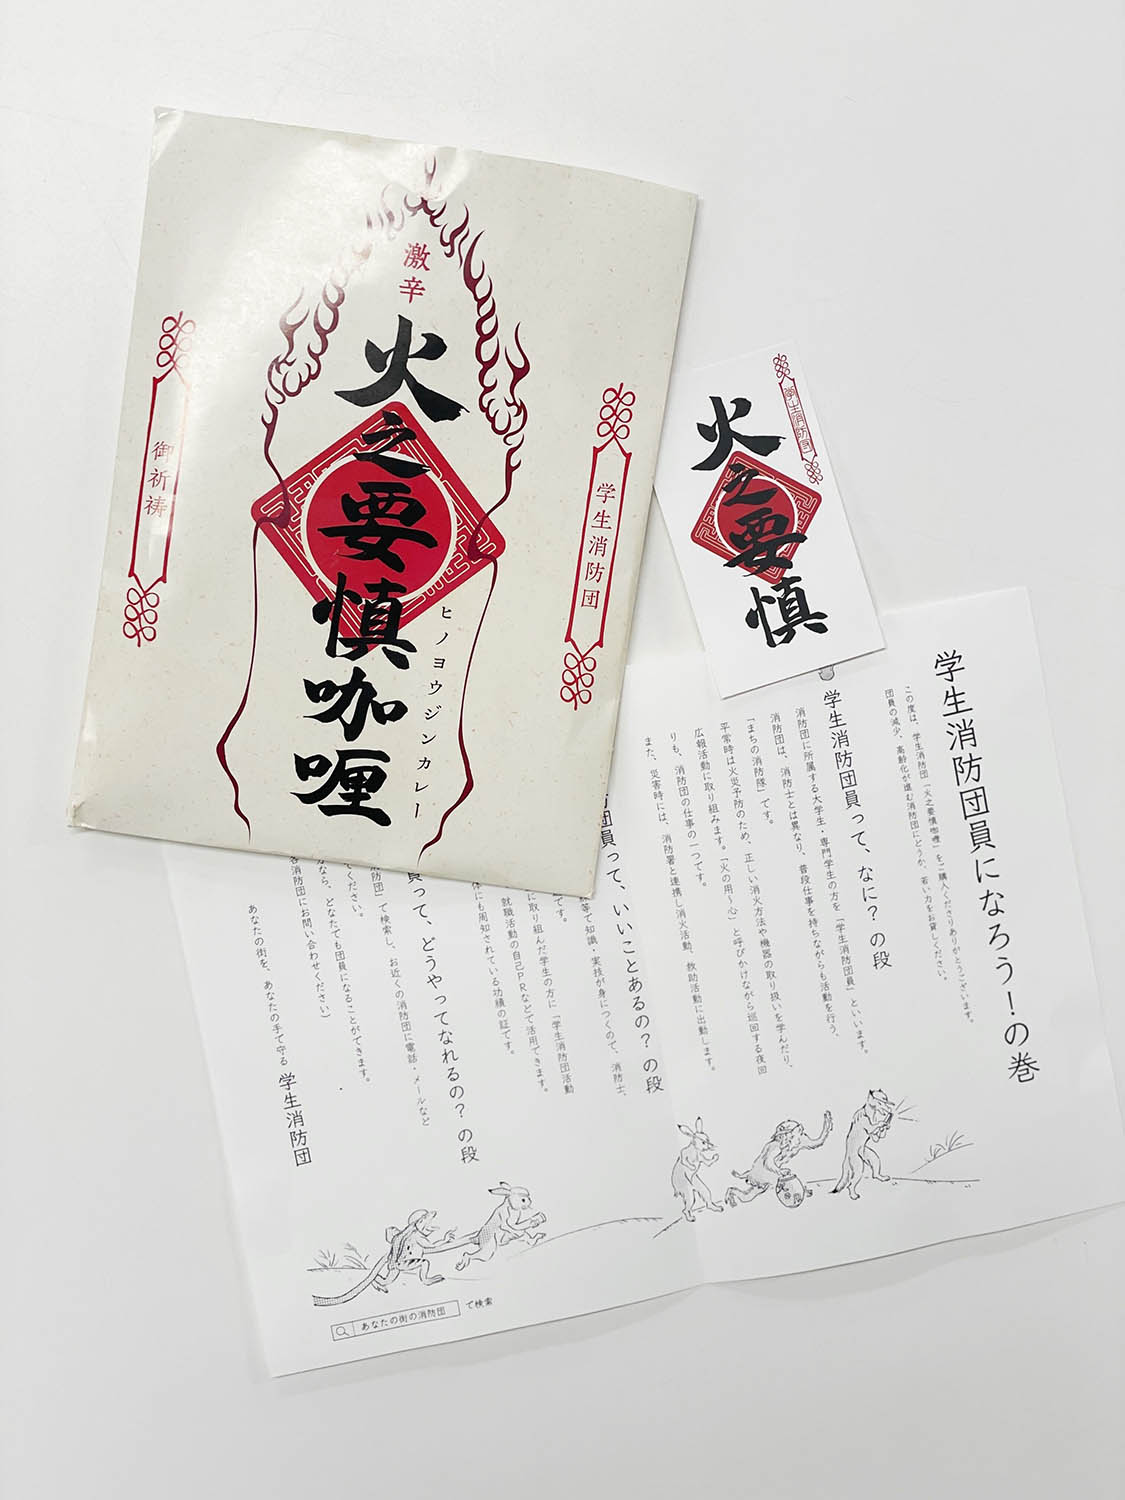 激辛
火之要慎咖喱
ヒノヨウジンカレー
御祈祷
学生消防団
学生消防団
火之要慎
学生消防団員になろう！の巻
この度は、学生消防団「火之要慎咖喱」をご購入くださりありがとうございます。
団員の減少、高齢化が進む消防団にどうか、若い力をお貸しください。
学生消防団員って、なに？の段
消防団に所属する大学生・専門学生の方を「学生消防団員」といいます。
消防団は、消防士とは異なり、普段仕事を持ちながらも活動を行う、
「まちの消防隊」です。
平常時は火災予防のため、正しい消火方法や機器の取り扱いを学んだり、
広報活動に取り組みます。「火の用～心」と呼びかけながら巡回する夜回
りも、消防団の仕事の一つです。
また、災害時には、消防署と連携し消火活動、救助活動に出動します。
防団員って、いいことあるの？の段
等で知識・実技が身につくので、消防士、
です。
に取り組んだ学生の方に「学生消防団活動
就職活動の自己PRなどで活用できます。
体にも周知されている功績の証です。
員って、どうやってなれるの？の段
防団」で検索し、お近くの消防団に電話・メールなど
てください。
方なら、どなたでも団員になることができます。
各消防団にお問い合わせください）
あなたの街を、あなたの手で守る 学生消防団
あなたの街の消防団 で検索